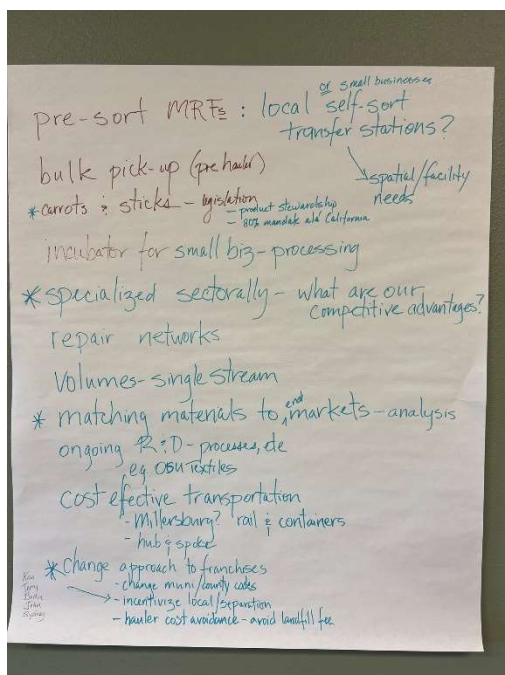 or small businesses
pre-sort MRFs : local self-sort
transfer stations?
bulk pick-up (pre hauler)
spatial/facility
needs
* carrots & sticks - legislation
- product stewardship
- 80% mandate ala California
incubator for small biz - processing
* specialized sectorally - what are our
competitive advantages?
repair networks
Volumes - single stream
* matching materials to end markets - analysis
ongoing R&D - processes, etc
eg OSU Textiles
cost effective transportation
- Millersburg? rail & containers
- hub & spoke
* Change approach to franchises
- change muni/county codes
- incentivize local/separation
- hauler cost avoidance - avoid landfill fee